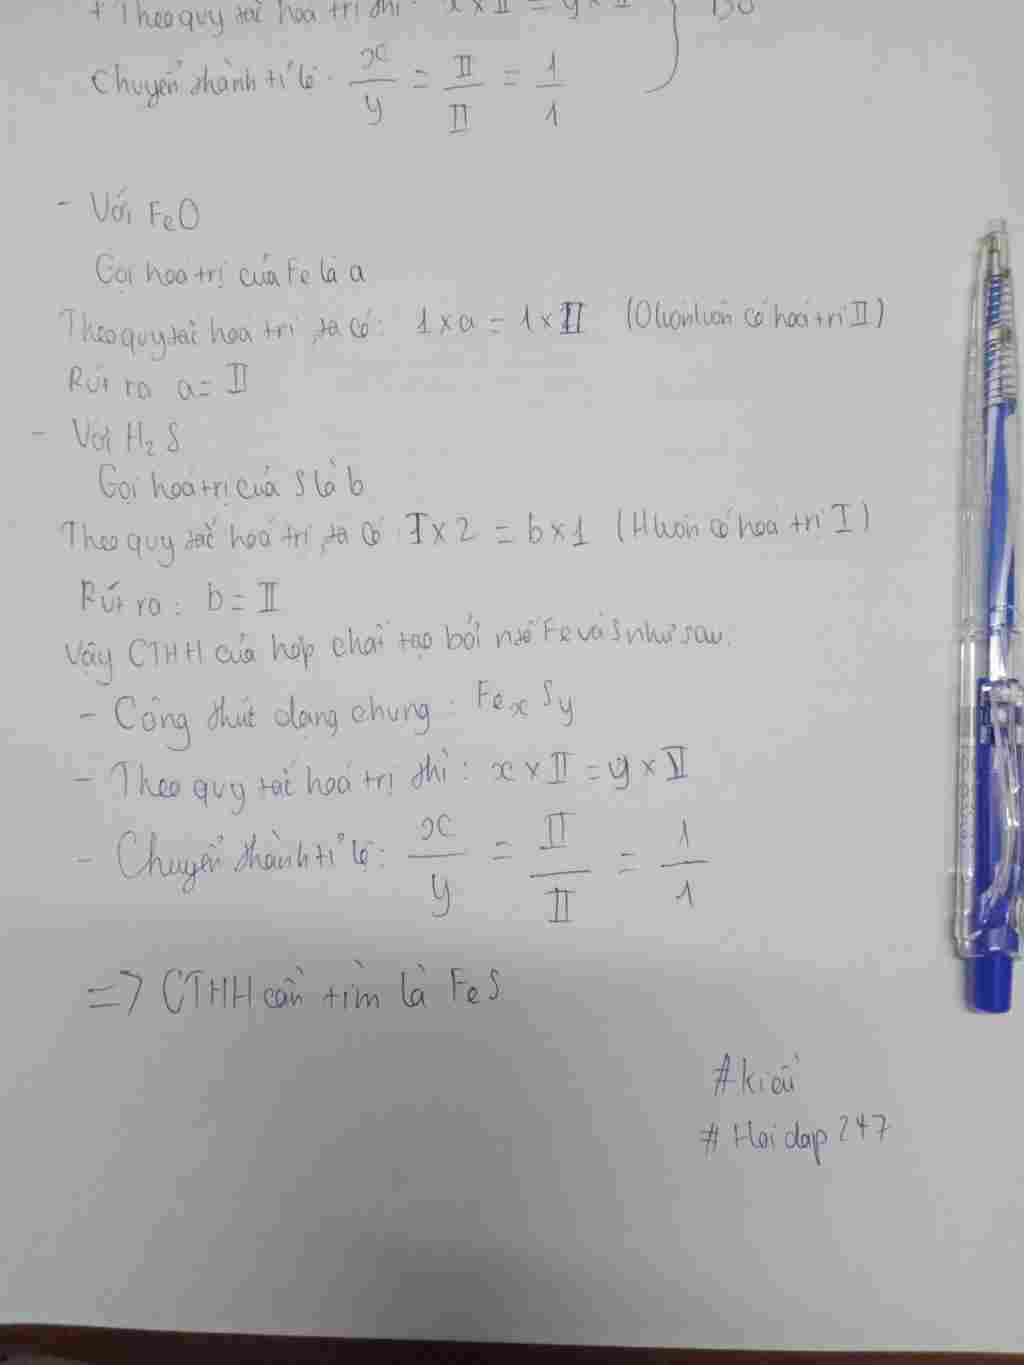 + Theo quy tắc hoá trị thì: x x II = y x II
Chuyển thành tỉ lệ: x/y = II/II = 1/1
- Với FeO
Gọi hoá trị của Fe là a
Theo quy tắc hoá trị, ta có: 1 x a = 1 x II (O luôn luôn có hoá trị II)
Rút ra a = II
- Với H₂S
Gọi hoá trị của S là b
Theo quy tắc hoá trị, ta có I x 2 = b x 1 (H luôn có hoá trị I)
Rút ra: b = II
Vậy CTHH của hợp chất tạo bởi ntố Fe và S như sau.
- Công thức dạng chung: FeₓSy
- Theo quy tắc hoá trị thì: x x II = y x II
- Chuyển thành tỉ lệ: x/y = II/II = 1/1
=> CTHH cần tìm là FeS
#kiều
#Hoidap247